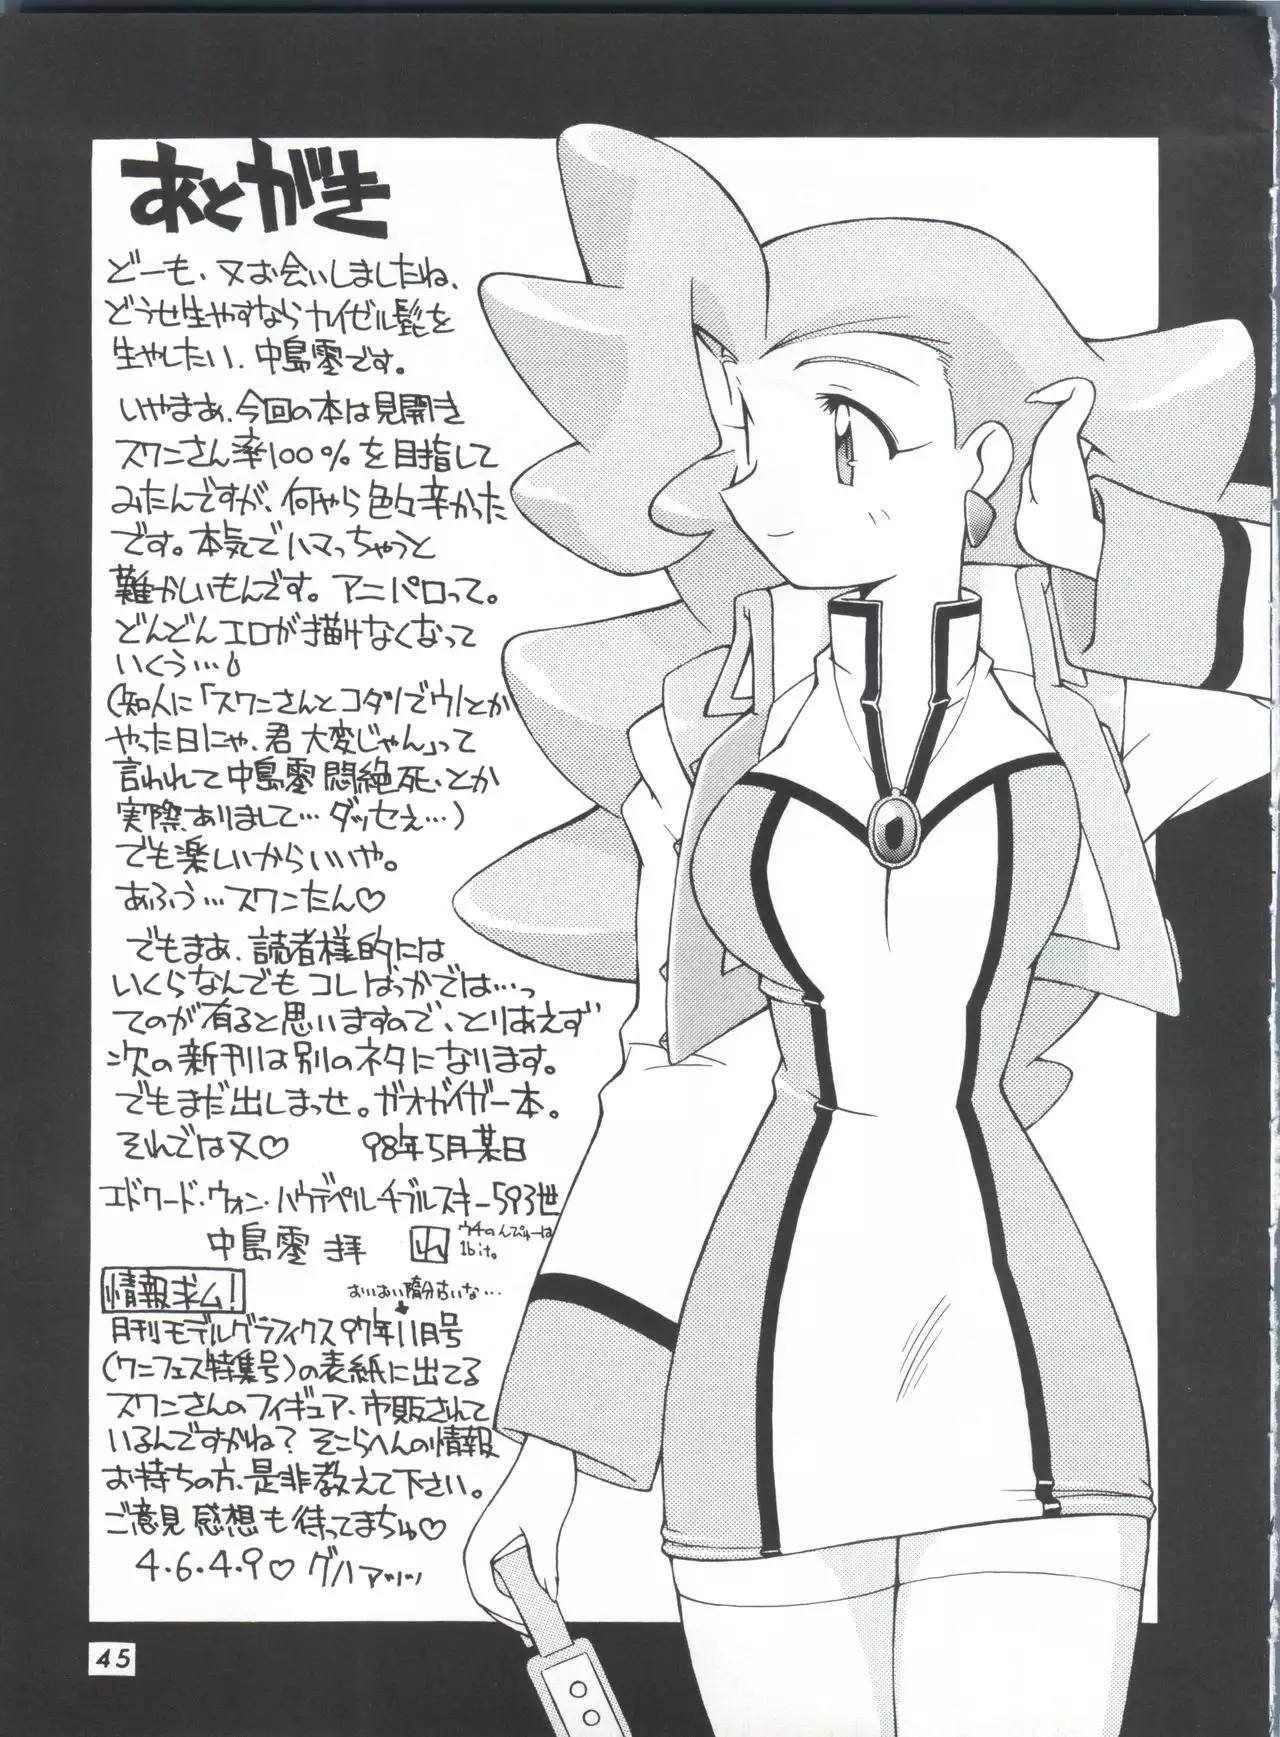 あとがき
どーも、又お会いしましたね、
どうせ生やすならカイゼル髭を
生やしたい、中島零です。
いやまあ、今回の本は見開き
スワンさん率100%を目指して
みたんですが、何やら色々辛かった
です。本気でハマっちゃうと
難かしいもんです。アニパロって。
どんどんエロが描けなくなって
いくう…
(知人に「スワンさんとコダ
やった日にゃ、君大変じゃん」って
言われて中島零悶絶死、とか
実際ありまして…ダッセぇ…)
でも楽しいからいいや。
あふう…スワンたん♡
でもまあ、読者様的には
いくらなんでもコレばっかでは…っ
てのが有ると思いますので、とりあえず
次の新刊は別のネタになります。
でもまだ出しまっせ。ガオガイガー本。
それでは又♡ 98年5月某日
エドワード・ウォン・ハウデペル・チブルスキー593世
中島零 拝 ウチのんぴゅーは
1bit。
情報求ム!
おいおい随分古いな…
月刊モデルグラフィクス97年11月号
(ワンフェス特集号)の表紙に出てる
スワンさんのフィギュア、市販されて
いるんですかね? そこらへんの情報
お持ちの方、是非教えて下さい。
ご意見感想も待ってまちゅ♡
4・6・4・9♡ グハァッッ
45